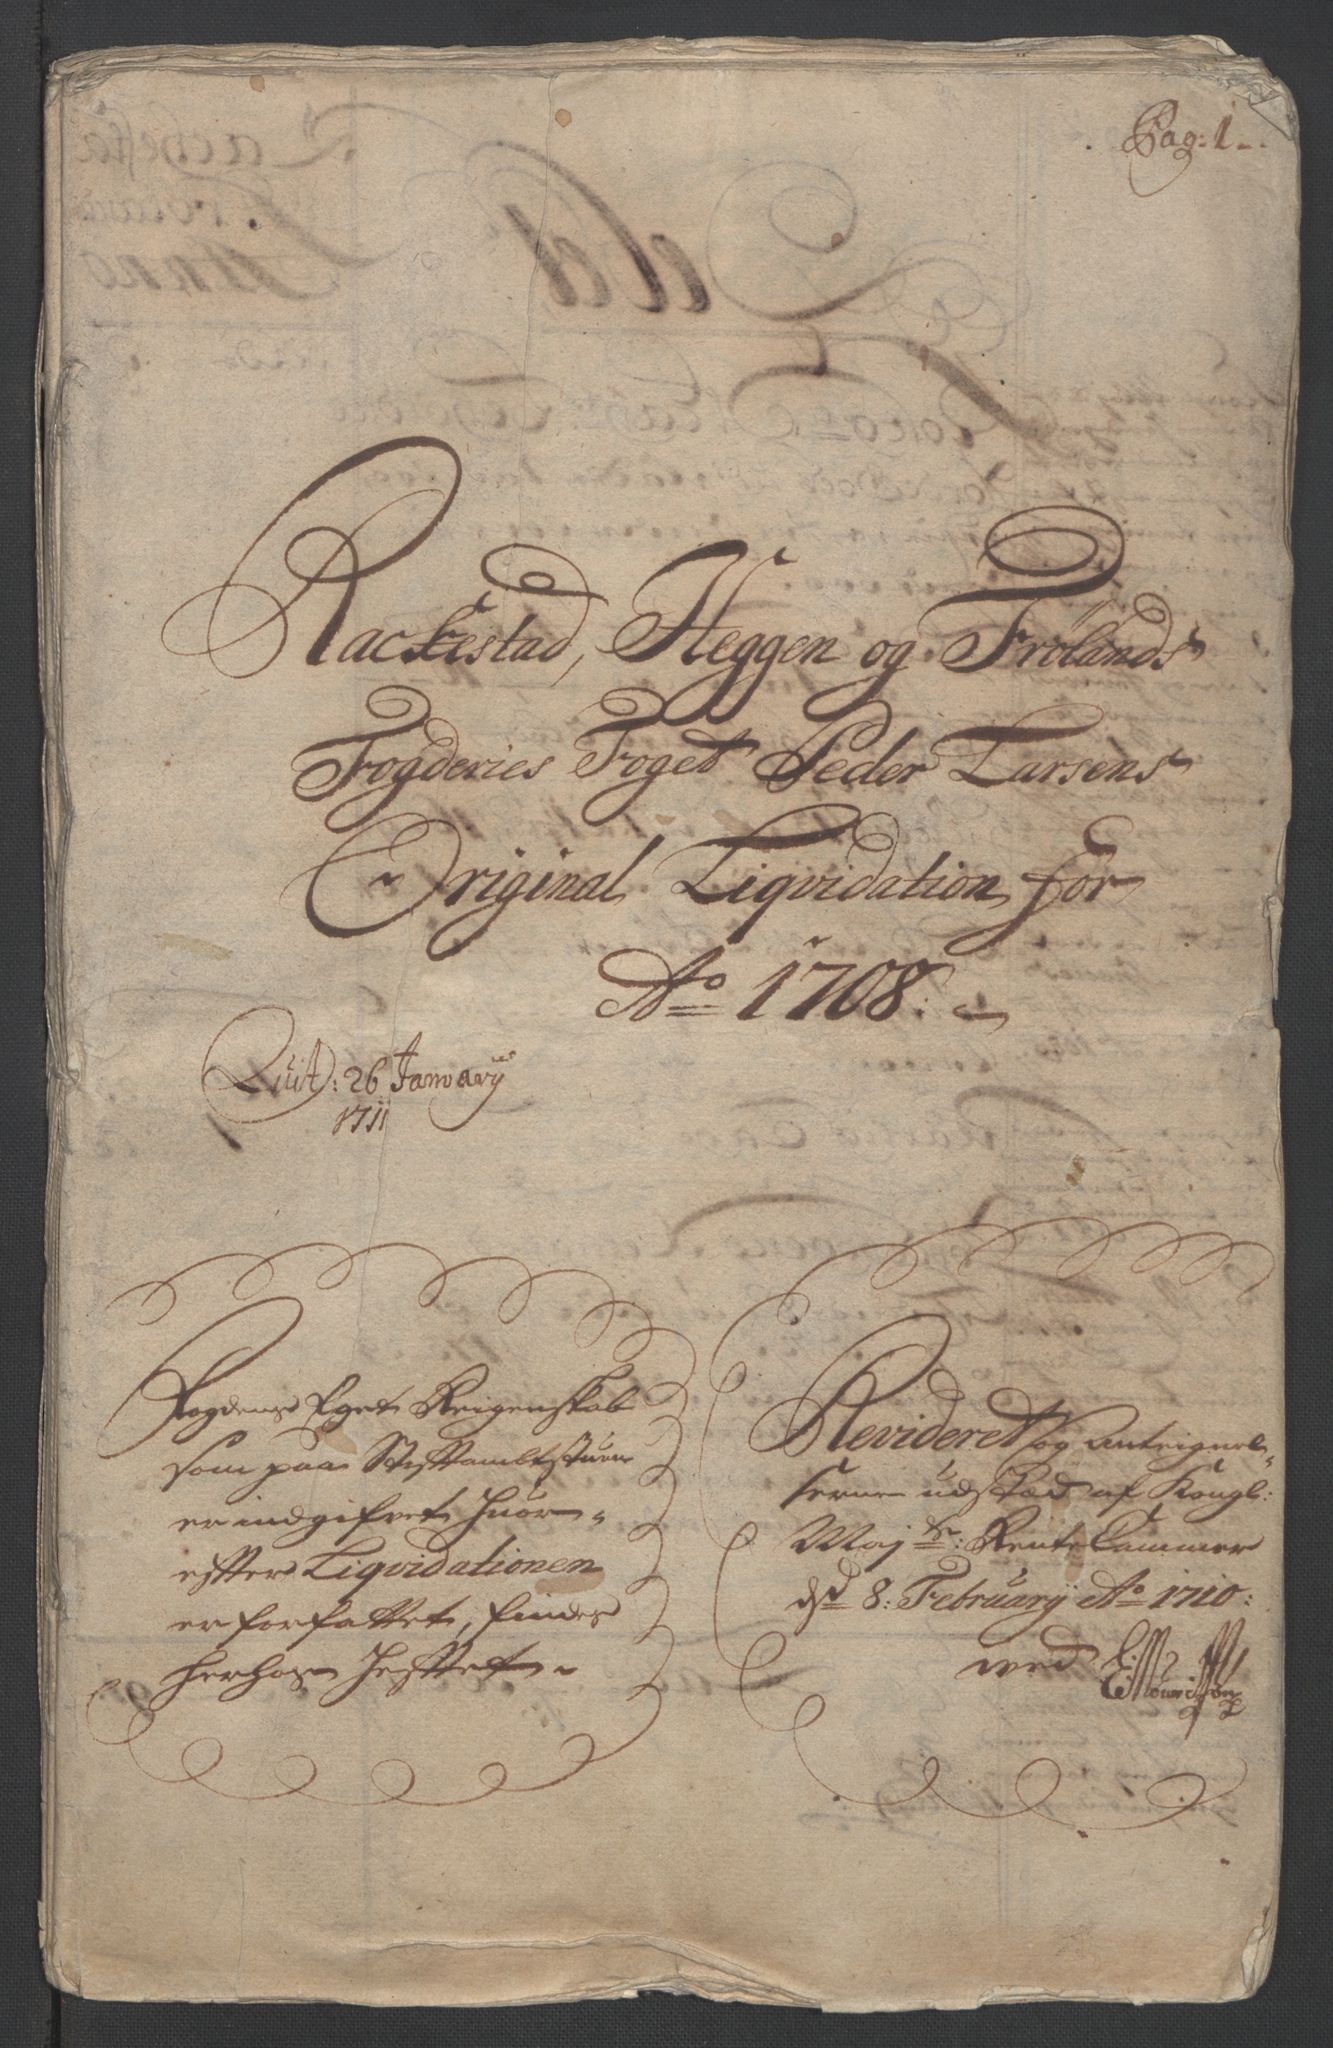 Pag: 1.
Rackestad, Heggen og Frölands
Fogderies Foget Peder Larsens
Original Liqvidation for
Ao 1708.
Qvit: 26 Januarij
1711
Fogdens Eget Reigenskab
som paa Stiftambtstuen
er indgifvet huor-
effter Liqvidationen
er forfattet, findes
herhosz hefftet.
Revideret og Anteignel-
serne udstæd af Kongl:
Mayts: Rente Cammer
dd 8. Februarij Ao 1710.
ved